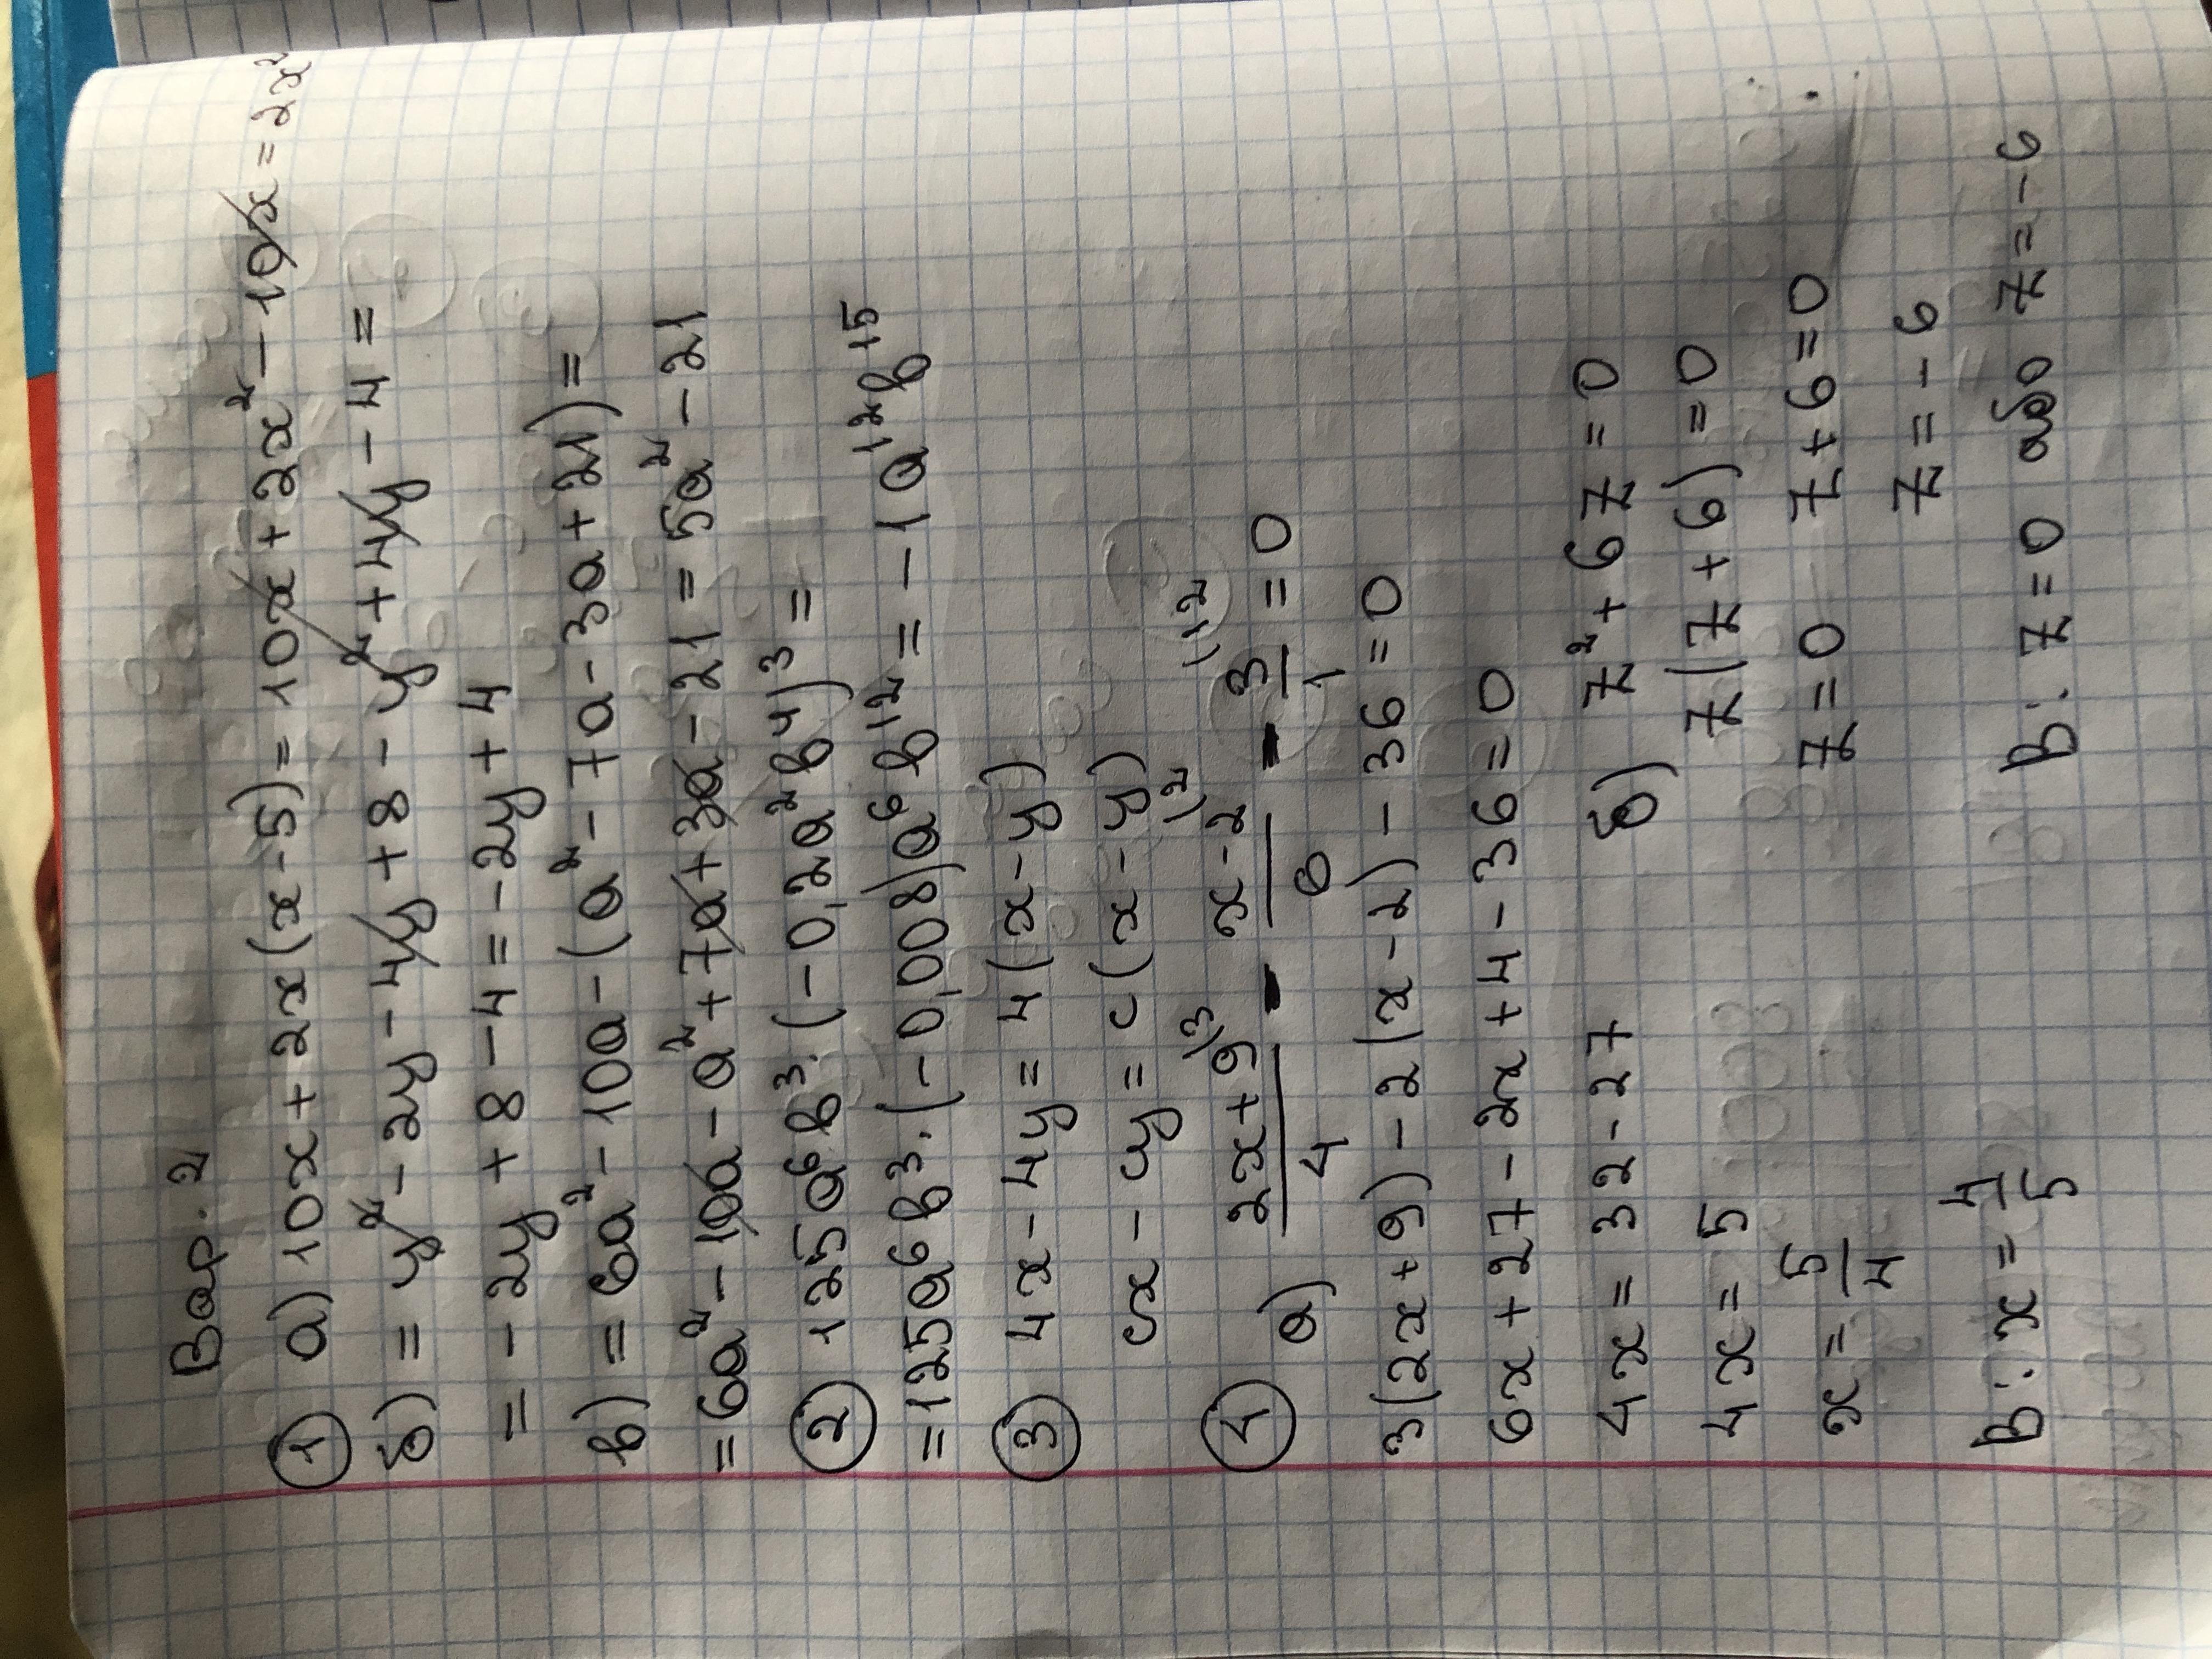 Вар. 2
① а) 10x + 2x(x-5) = 10x + 2x² - 10x = 2x²
б) = y² - 2y - 4y + 8 - y² + 4y - 4 =
= - 2y + 8 - 4 = - 2y + 4
в) = 6a² - 10a - (a² - 7a - 3a + 21) =
= 6a² - 10a - a² + 7a + 3a - 21 = 5a² - 21
② 125a⁶b³ · (-0,2a²b⁴)³ =
= 125a⁶b³ · (-0,008)a⁶b¹² = - 1a¹²b¹⁵
③ 4x - 4y = 4(x-y)
cx - cy = c(x-y)
④ а) (2x+9)/4 ⁽³ - (x-2)/6 ⁽² - 3/1 ⁽¹² = 0
3(2x+9) - 2(x-2) - 36 = 0
6x + 27 - 2x + 4 - 36 = 0
4x = 32 - 27
4x = 5
x = 5/4
В: x = 4/5
б) z² + 6z = 0
z(z+6) = 0
z = 0 z + 6 = 0
z = - 6
В: z = 0 або z = - 6